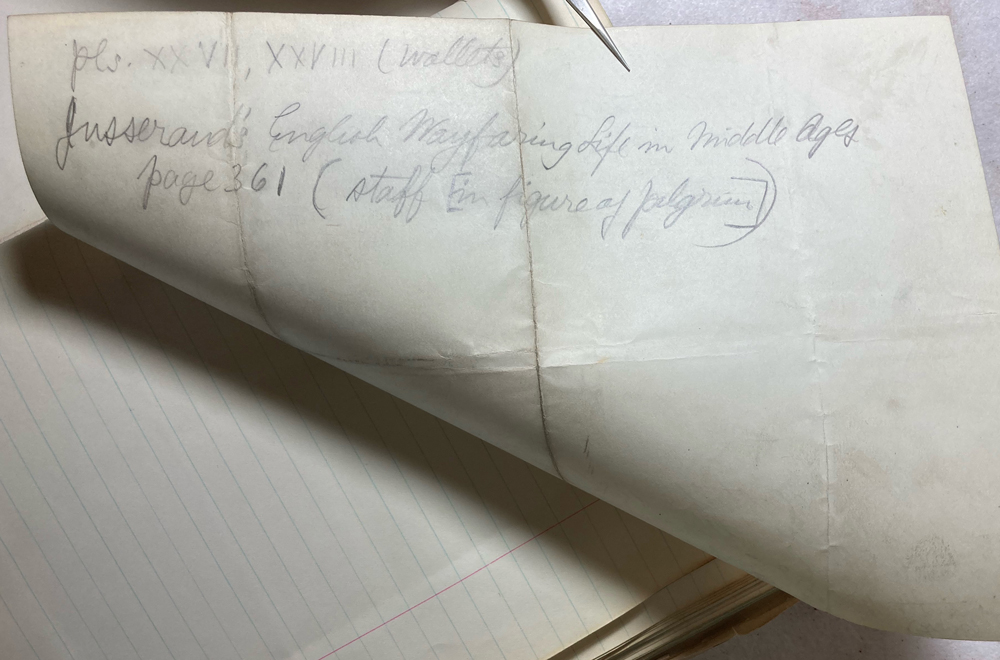 pls. XXVII, XXVIII (wallets)
Jusserand's English Wayfaring Life in Middle Ages
page 361 (staff in figure of pilgrim)